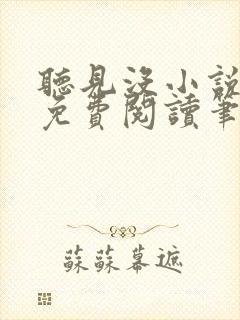 聽見沒小說
免費閱讀筆
蘇蘇幕遮